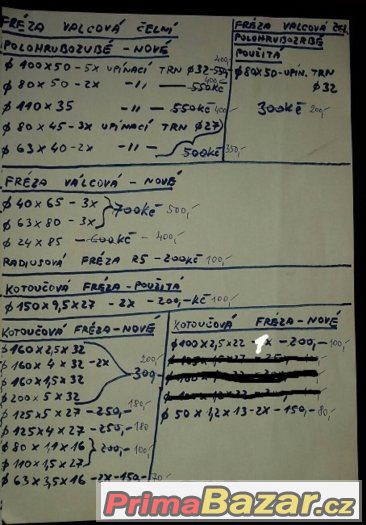 FRÉZA VALCOVÁ ČELNÍ
POLOHRUBOZUBÉ - NOVÉ
400,-
φ 100×50 - 5× UPÍNACÍ TRN φ32 - 550,-
400,-
φ 80×50 - 2× -"- 550KČ
φ 110×35 -"- 550KČ 400,-
φ 80×45 - 3× UPÍNACÍ TRN φ27
φ 63×40 - 2× -"- 500KČ 350,-
FRÉZA VALCOVÁ ČEL.
POLOHRUBOZUBÉ
POUŽITÁ
φ80×50 - UPÍN. TRN
φ32
300KČ 200,-
FRÉZA VÁLCOVÁ - NOVÉ
φ 40×65 - 3×
φ 63×80 - 3× 700KČ 500,-
φ 24×85 - 600KČ - 400,-
RADIUSOVÁ FRÉZA R5 - 200KČ 100,-
KOTOUČOVÁ FRÉZA - POUŽITÁ
φ150×9,5×27 - 2× - 200,-KČ 100,-
KOTOUČOVÁ FRÉZA - NOVÉ
φ160×2,5×32
φ160×4×32 - 2× 200,-
φ160×1,5×32 300,-
φ200×5×32 180,-
φ125×5×27 - 250,- 180
φ125×4×27 - 250,- 180
φ 80×1,1×16
φ110×1,5×27 200,- 100,-
φ 63×3,5×16 - 2× - 150,- 70,-
KOTOUČOVÁ FRÉZA - NOVÉ
φ100×2,5×22 - 200,- 100,-
φ 50×1,2×13 - 2× - 150,- 80,-
PrimaBazar.cz